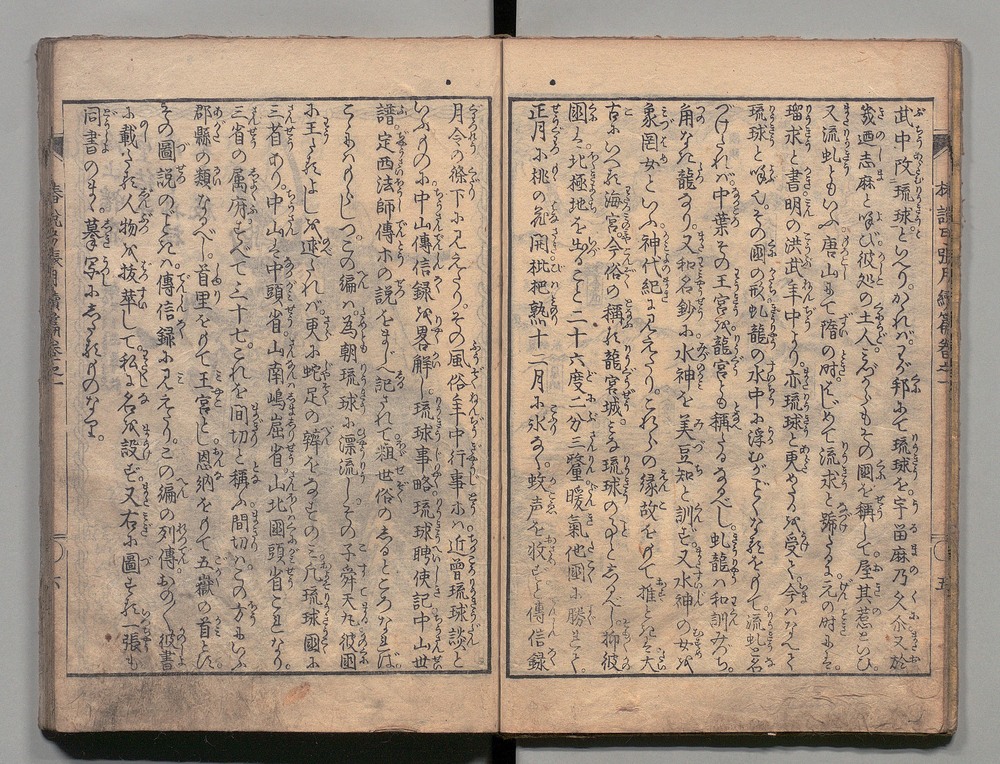 武中改琉球といへりかゝれバわが邦にて琉球を宇留麻乃久尓又於
義廼志麻と喚び彼処の土人ハみづからもその國を稱して屋其惹といひ
又流虬ともいふ唐山にて隋の時はじめて流求と号し元の時にハ
瑠求と書明の洪武年中より亦琉球と更めたるを受て今ハなべて
琉球と唱ふその國の形虬龍の水中に浮むがごとくなるをもて流虬と名
づけたれバ中葉その王宮を龍宮とも稱たるなるべし虬龍ハ和訓みづち
角なき龍なり又和名鈔に水神を美豆知と訓ず又水神の女を
象罔女といふ神代紀に見えたりこれらの縁故をもて推ときハ大
古にいへる海宮今俗の稱れる龍宮城とハ琉球の事としるべし抑彼
國ハ北極地を出ること二十六度二分三釐暖氣他國に勝れて
正月に桃の花開枇杷熟十二月に氷なく蚊声を收ずと傳信録
月令の條下に見えたりその風俗年中行事ハ近曾琉球談と
いふものに中山傳信録を畧解し琉球事略琉球聘使記中山世
譜定西法師傳ホの説をまじへ記されて粗世俗のしるところなれば
こゝにハもらしつこの編ハ為朝琉球に漂流しその子舜天丸彼國
に王たるよしを述たれバ更に蛇足の辨をなすのミ凡琉球國に
三省あり中山ハ中頭省山南ハ嶋尻省山北ハ國頭省これなり
三省の属府すべて三十七これを間切と稱ふ間切ハこの方にいふ
郡縣の類なるべし首里をもて王宮とし恩納をもて五嶽の首とす
その圖説のごときハ傳信録に見えたりこの編の列傳おの〳〵彼書
に載たる人物を抜華して私に名を設ず又右に圖する一張も
同書のまゝ摹写にしたるものなり
椿説弓張月續篇卷之一
五
椿説弓張月續篇卷之一
六